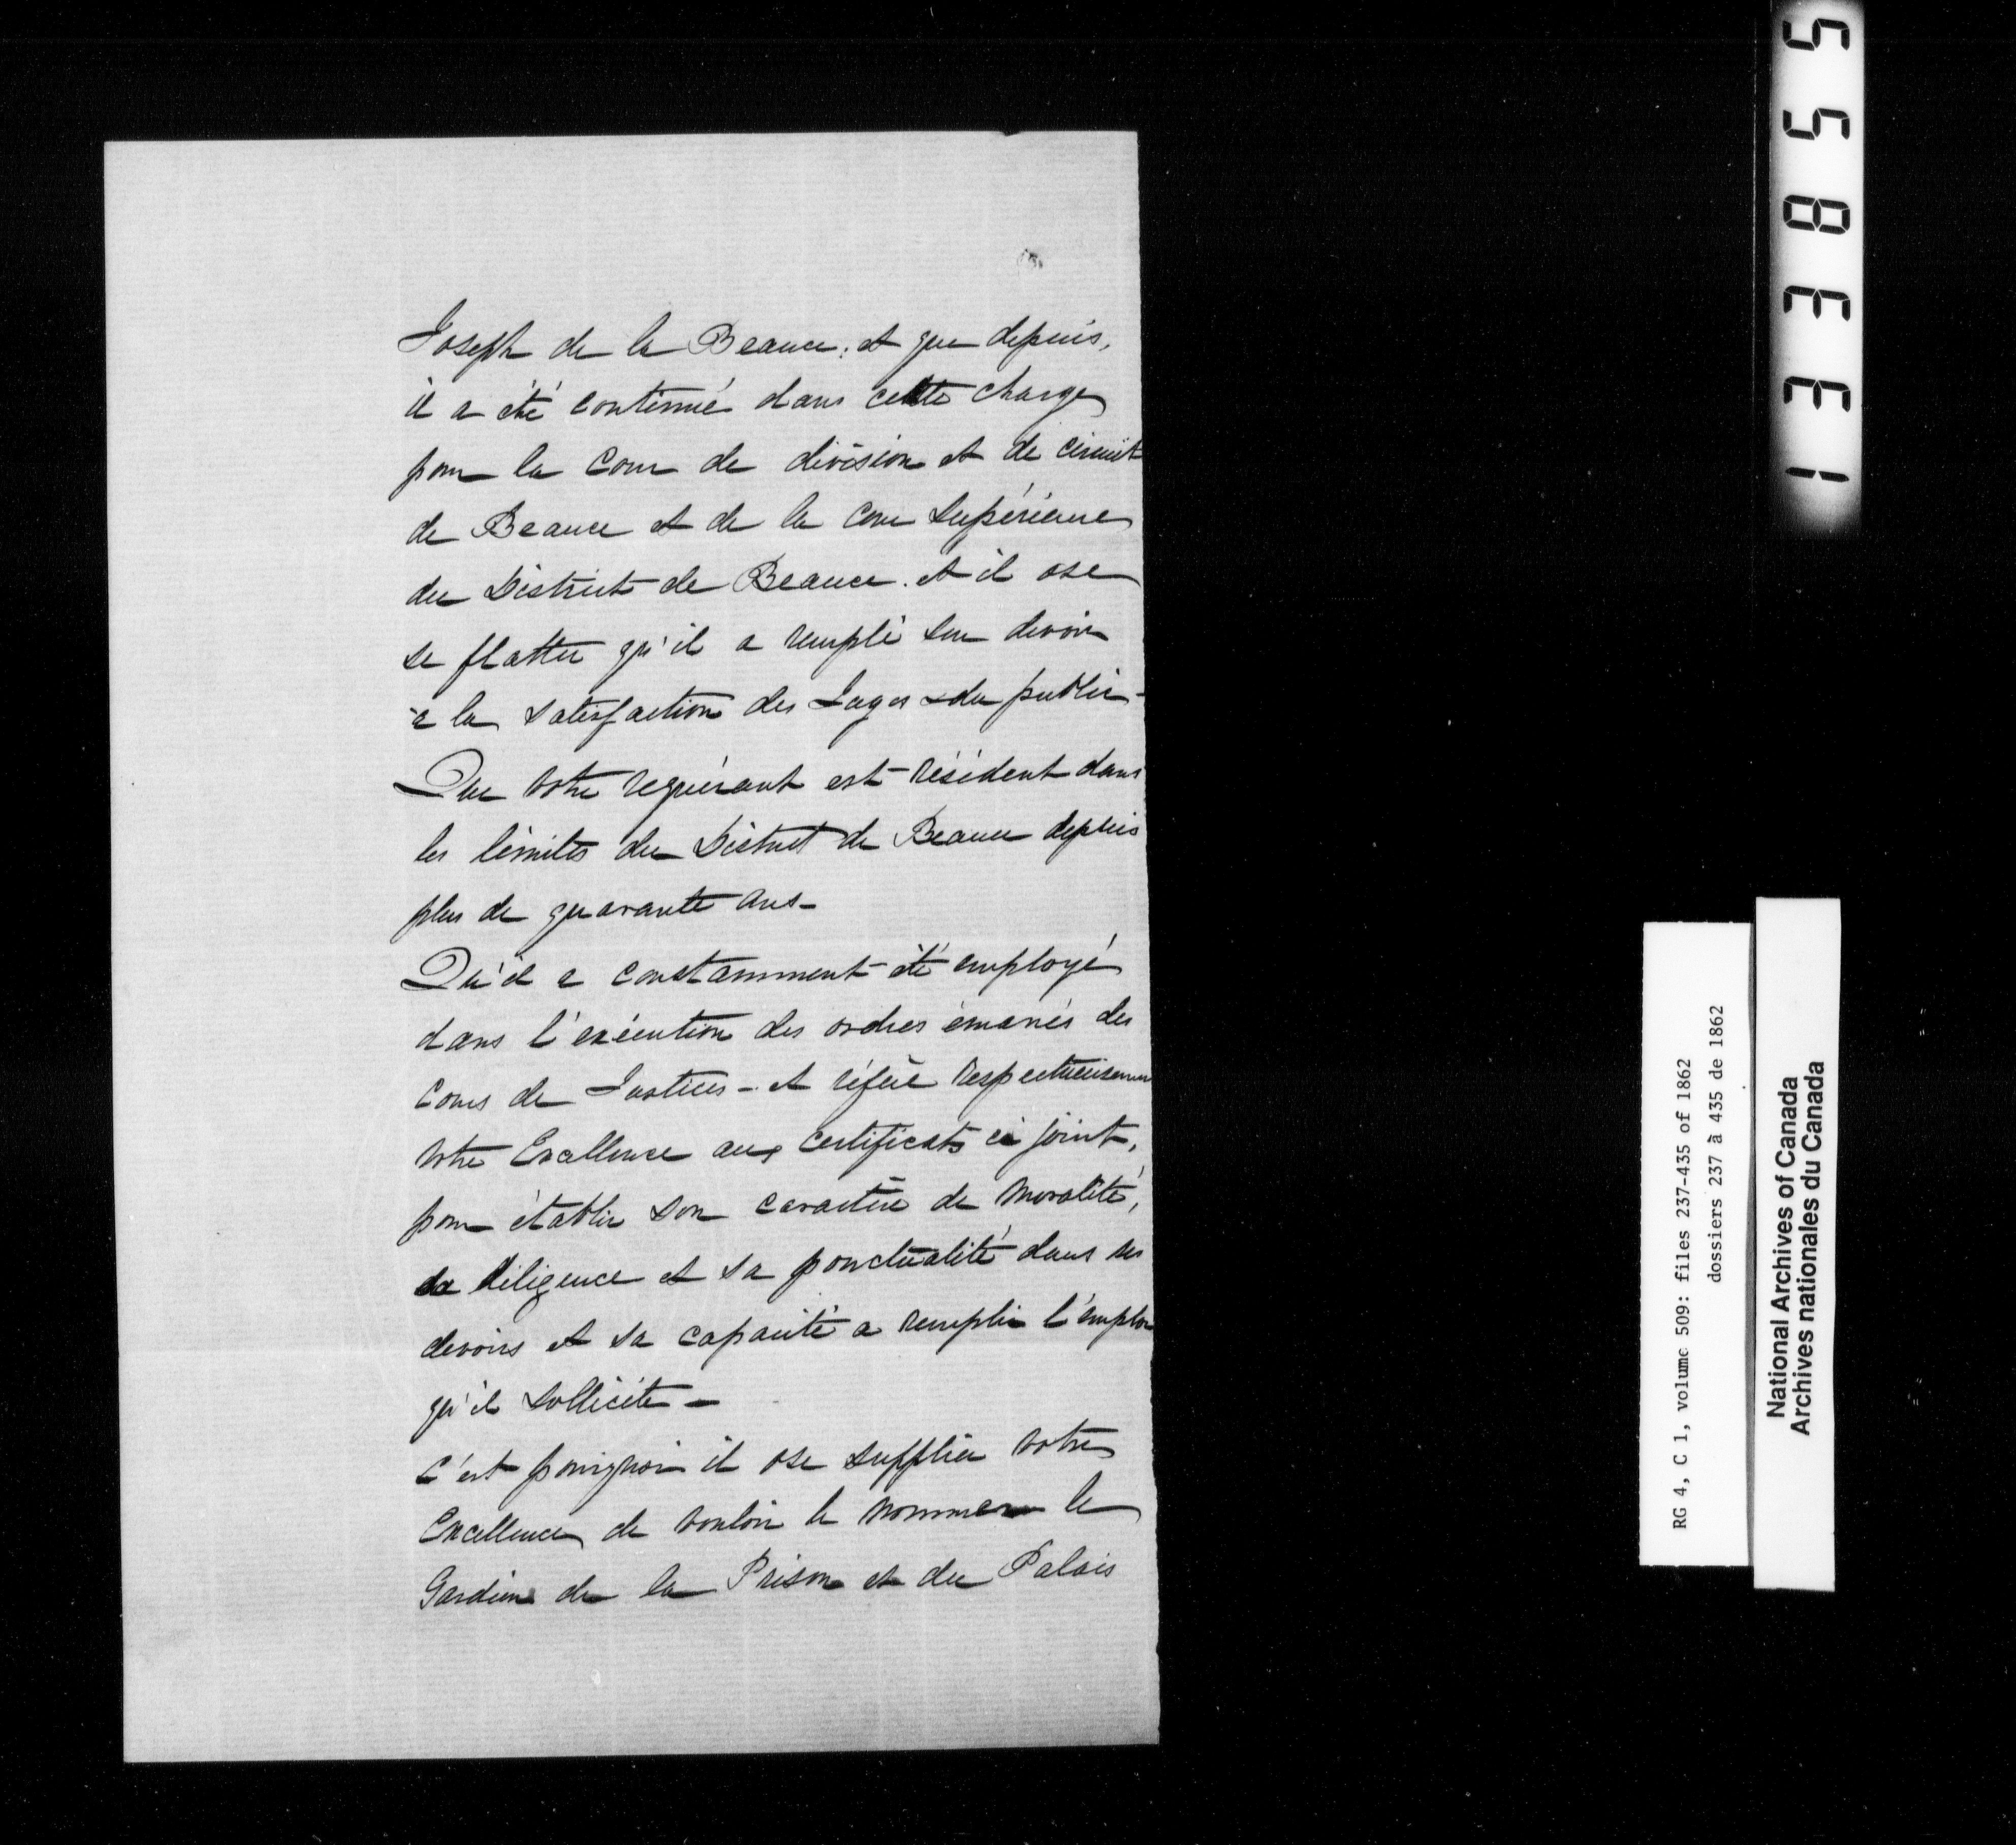 Joseph de la Beauce; et que depuis,
il a été continué dans cette charge
pour la Cour de division et de circuit
de Beauce et de la Cour Supérieure
du District de Beauce. et il ose
se flatter qu'il a rempli son devoir
à la satisfaction des Juges & du public-
Que votre requérant est résident dans
les limites du District de Beauce depuis
plus de quarante ans-
Qu'il a constamment été employé
dans l'exécution des ordres émanés des
Cours de Justices - et réfère respectueusemen
votre Excellence aux certificats ci joint,
pour établir son caractère de moralité,
sa diligence et sa ponctualité dans ses
devoirs et sa capacité a remplir l'emploi
qu'il sollicite -
C'est pourquoi il ose supplier votre
Excellence de vouloir le nommer le
Gardien de la Prison et du Palais
133855
RG 4, C 1, volume 509: files 237-435 of 1862
dossiers 237 à 435 de 1862
National Archives of Canada
Archives nationales du Canada